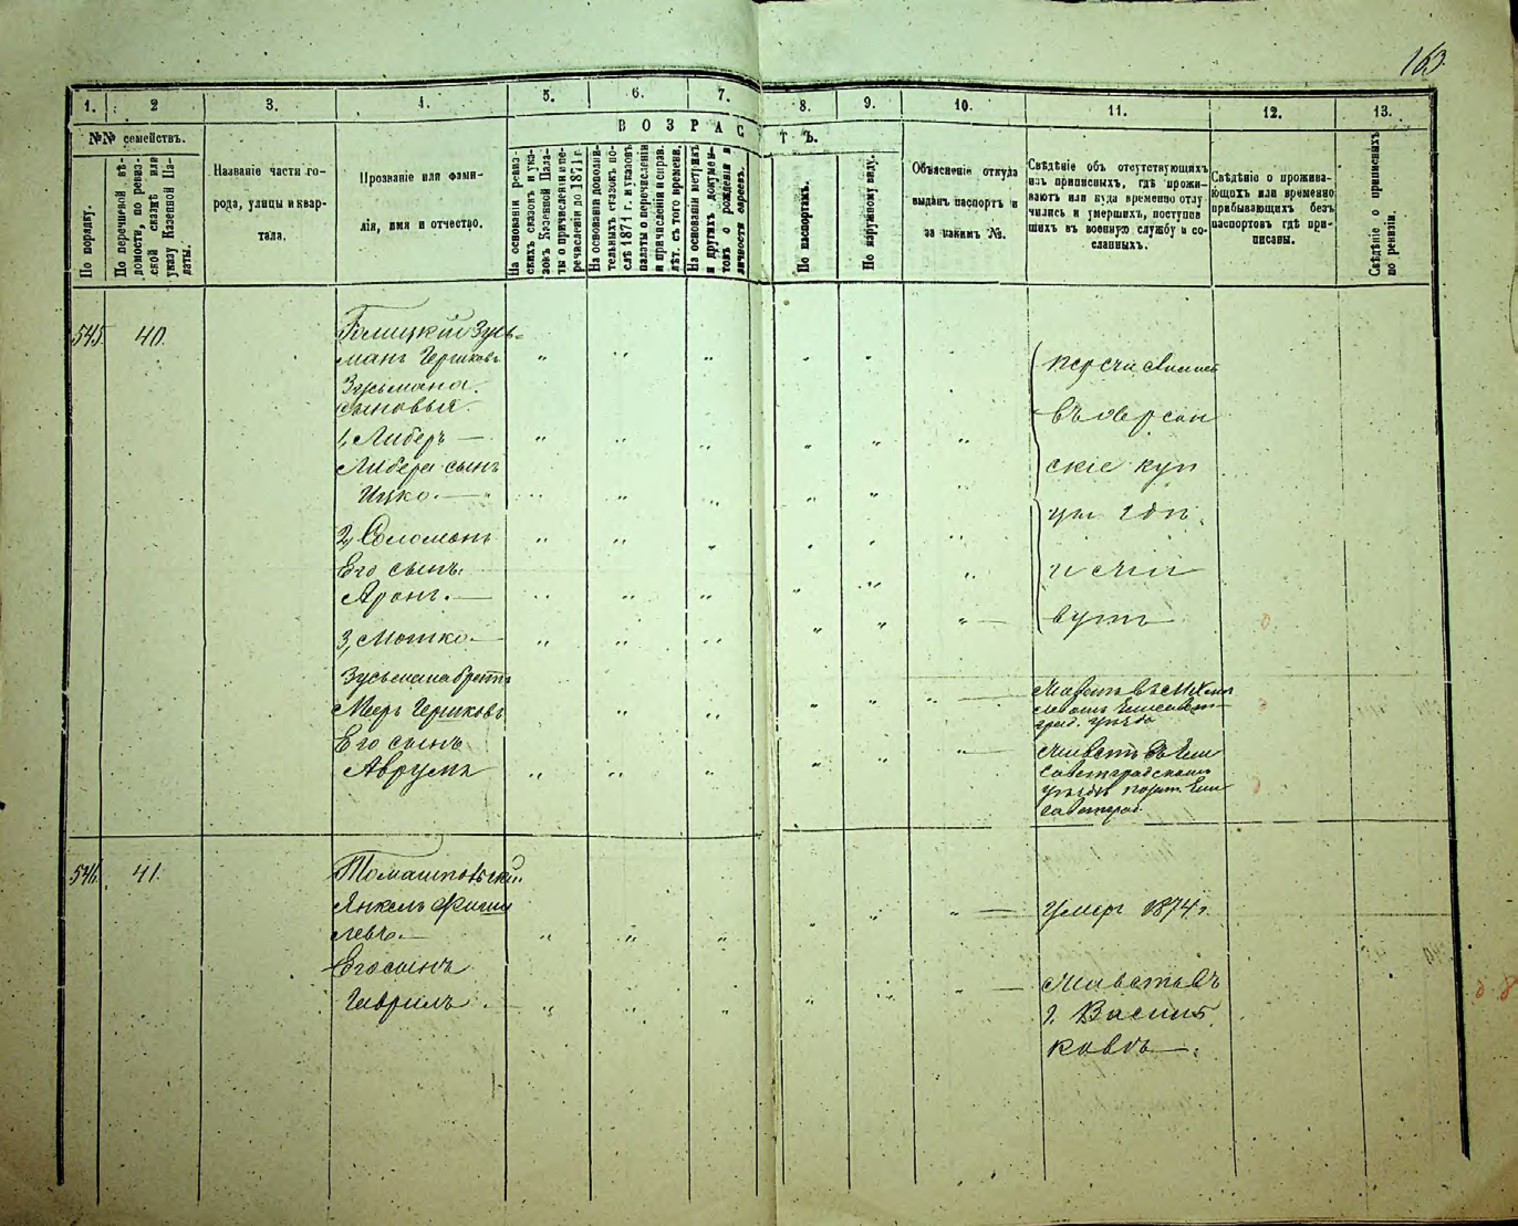 163.
1. 2 3. 4. 5. 6. 7. 8. 9. 10. 11. 12. 13.
№№ семействъ.
ВОЗРАСТЪ.
По порядку.
По перечневой вѣ-
домости, по ревиз-
ской сказкѣ или
указу Казенной Па-
латы.
Названіе части го-
рода, улицы и квар-
тала.
Прозваніе или фами-
лія, имя и отчество.
На основаніи ревиз-
скихъ сказокъ и ука-
зовъ Казенной Пала-
ты о причисленіи и пе-
речисленіи до 1871 г.
На основаніи дополни-
тельныхъ сказокъ по-
слѣ 1871 г. и указовъ
палаты о перечисленіи
и причисленіи и справ.
лѣт. съ того времени.
На основаніи метрикъ
и другихъ докумен-
товъ о рожденіи и
личности евреевъ.
По паспортамъ.
По наружному виду.
Объясненіе откуда
выданъ паспортъ и
за какимъ №.
Свѣдѣніе объ отсутствующихъ
изъ приписныхъ, гдѣ прожи-
ваютъ или куда временно отлу-
чились и умершихъ, поступив
шихъ въ военную службу и со-
сланныхъ.
Свѣдѣніе о прожива-
ющихъ или временно
прибывающихъ безъ
паспортовъ гдѣ при-
писаны.
Свѣдѣніе о приписныхъ
по ревизіи.
545. 40.
Зусь-
манъ Гершковъ
Зусьмана
сыновья.
1, Либеръ —
Либера сынъ
Ицко. —
2, Соломонъ
Его сынъ.
Аронъ. —
3, Мошко. —
перечислились
въ Херсон
скіе куп
цы
вутъ
Зусьмана братъ
Меръ Гершковъ
Его сынъ
Аврумъ
Живетъ въ Ели
саветградскомъ
546. 41.
Томашпольскій
Янкель Фиши
левъ. —
Умеръ 1874 г.
Его сынъ
Гаврилъ.
Живетъ въ
г. Василь
ковѣ —